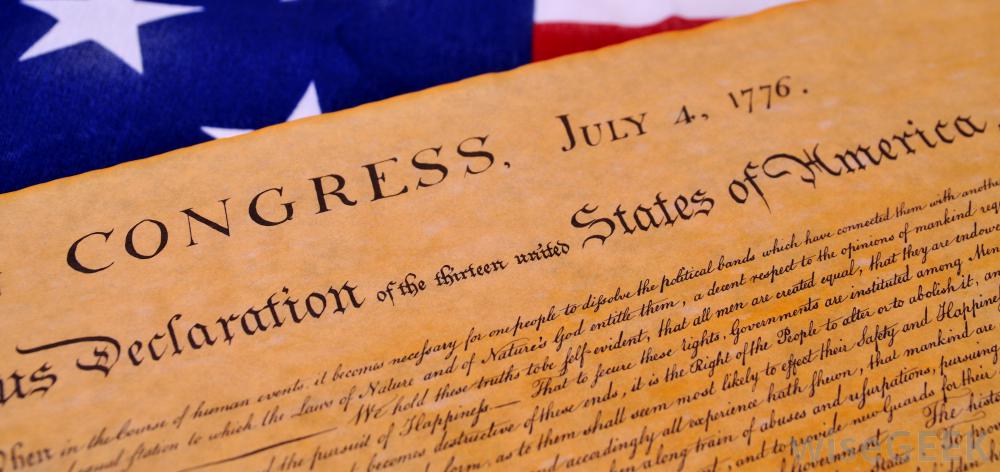 CONGRESS, JULY 4, 1776.
us Declaration of the thirteen united States of America,
When in the Course of human events, it becomes necessary for one people to dissolve the political bands which have connected them with another
equal station to which the Laws of Nature and of Nature's God entitle them, a decent respect to the opinions of mankind req
We hold these truths to be self-evident, that all men are created equal, that they are endowe
the pursuit of Happiness.— That to secure these rights, Governments are instituted among Men
becomes destructive of these ends, it is the Right of the People to alter or to abolish it, an
form, as to them shall seem most likely to effect their Safety and Happine
accordingly all experience hath shewn, that mankind are
when a long train of abuses and usurpations, pursuing
, and to provide new Guards for their
The histo
wiseGEEK